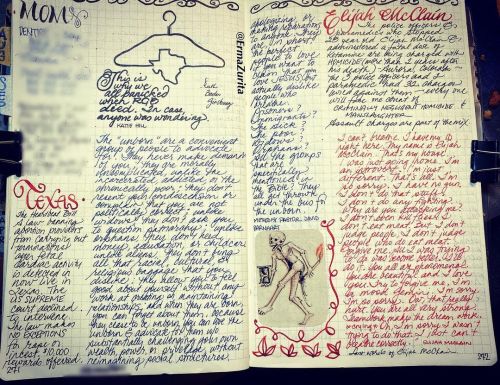 MOM
DENT
This is
why we
all panicked
when RGB
died. In case
anyone was wondering
KATIE HILL
@ErmaZurita
Texas
The Heartbeat Bill
a law banning
abortion providers
from carrying out
terminations
once fetal
cardiac activity
is detected is
now live in
Texas. The
US SUPREME
Court declined
to intervene.
The law makes
no EXCEPTIONS
for rape or
incest. $10,000
rewards offered.
271
"The unborn" are a convenient
group of people to advocate
for. They never make demands
of you; they are morally
uncomplicated, unlike the
incarcerated, addicted, or the
chronically poor; they don't
resent your condescension or
complain that you are not
politically correct; unlike
widows, they don't ask you
to question patriarchy; unlike
orphans, they don't need
money, education, or childcare;
unlike aliens, they don't bring
all that racial, cultural, and
religious baggage that you
dislike; they allow you to feel
good about yourself without any
work at creating or maintaining
relationships; and when they are born,
you can forget about them, because
they cease to be unborn. You can love the
unborn & advocate for them without
substantially challenging your own
wealth, power, or privilege, without
reimagining social structures,
apologizing, or
making reparations
to anyone. They
are, in short,
the perfect
people to love
if you want to
claim that you
love JESUS but
actually dislike
people who
breathe.
Prisoners?
Immigrants?
The sick?
The poor?
Widows?
Orphans?
All the groups
that are
specifically
mentioned in
the Bible? They
all get thrown
under the bus for
the unborn.
METHODIST PASTOR DAVID
BARNHART
Elijah McClain
The police officers &
paramedics who stopped
23 year old Elijah McClain &
administered a fatal dose of
Ketamine are being charged with
HOMICIDE more than 2 years after
his death, Aurora, Colorado
the 3 police officers and 2
paramedics had 32 charges
against them - every one
will face one count of
CRIMINALLY NEGLIGENT HOMICIDE &
MANSLAUGHTER
Assault charges are part of the mix.
I can't breathe. I have my ID
right here. My name is Elijah
McClain. That's my house.
I was just going home. I'm
an introvert. I'm just
different. That's all. I'm
so sorry. I have no gun.
I don't do that stuff.
I don't do any fighting.
Why are you attacking me?
I don't even kill flies! I
don't eat meat. But I don't
judge people, I don't judge
people who do eat meat.
Forgive me. All I was trying
to do was become better. I'll do
it. You all are phenomenal.
You are beautiful and I love
you. Try to forgive me. I'm
a mood Gemini. I'm sorry.
I'm so sorry. Ow, that really
hurt. You are all very strong.
Teamwork makes the dream work.
Oh, I'm sorry I wasn't
trying to do that. I just can't
breathe correctly. ELIJAH McCLAIN
Last words of Elijah McClain
272